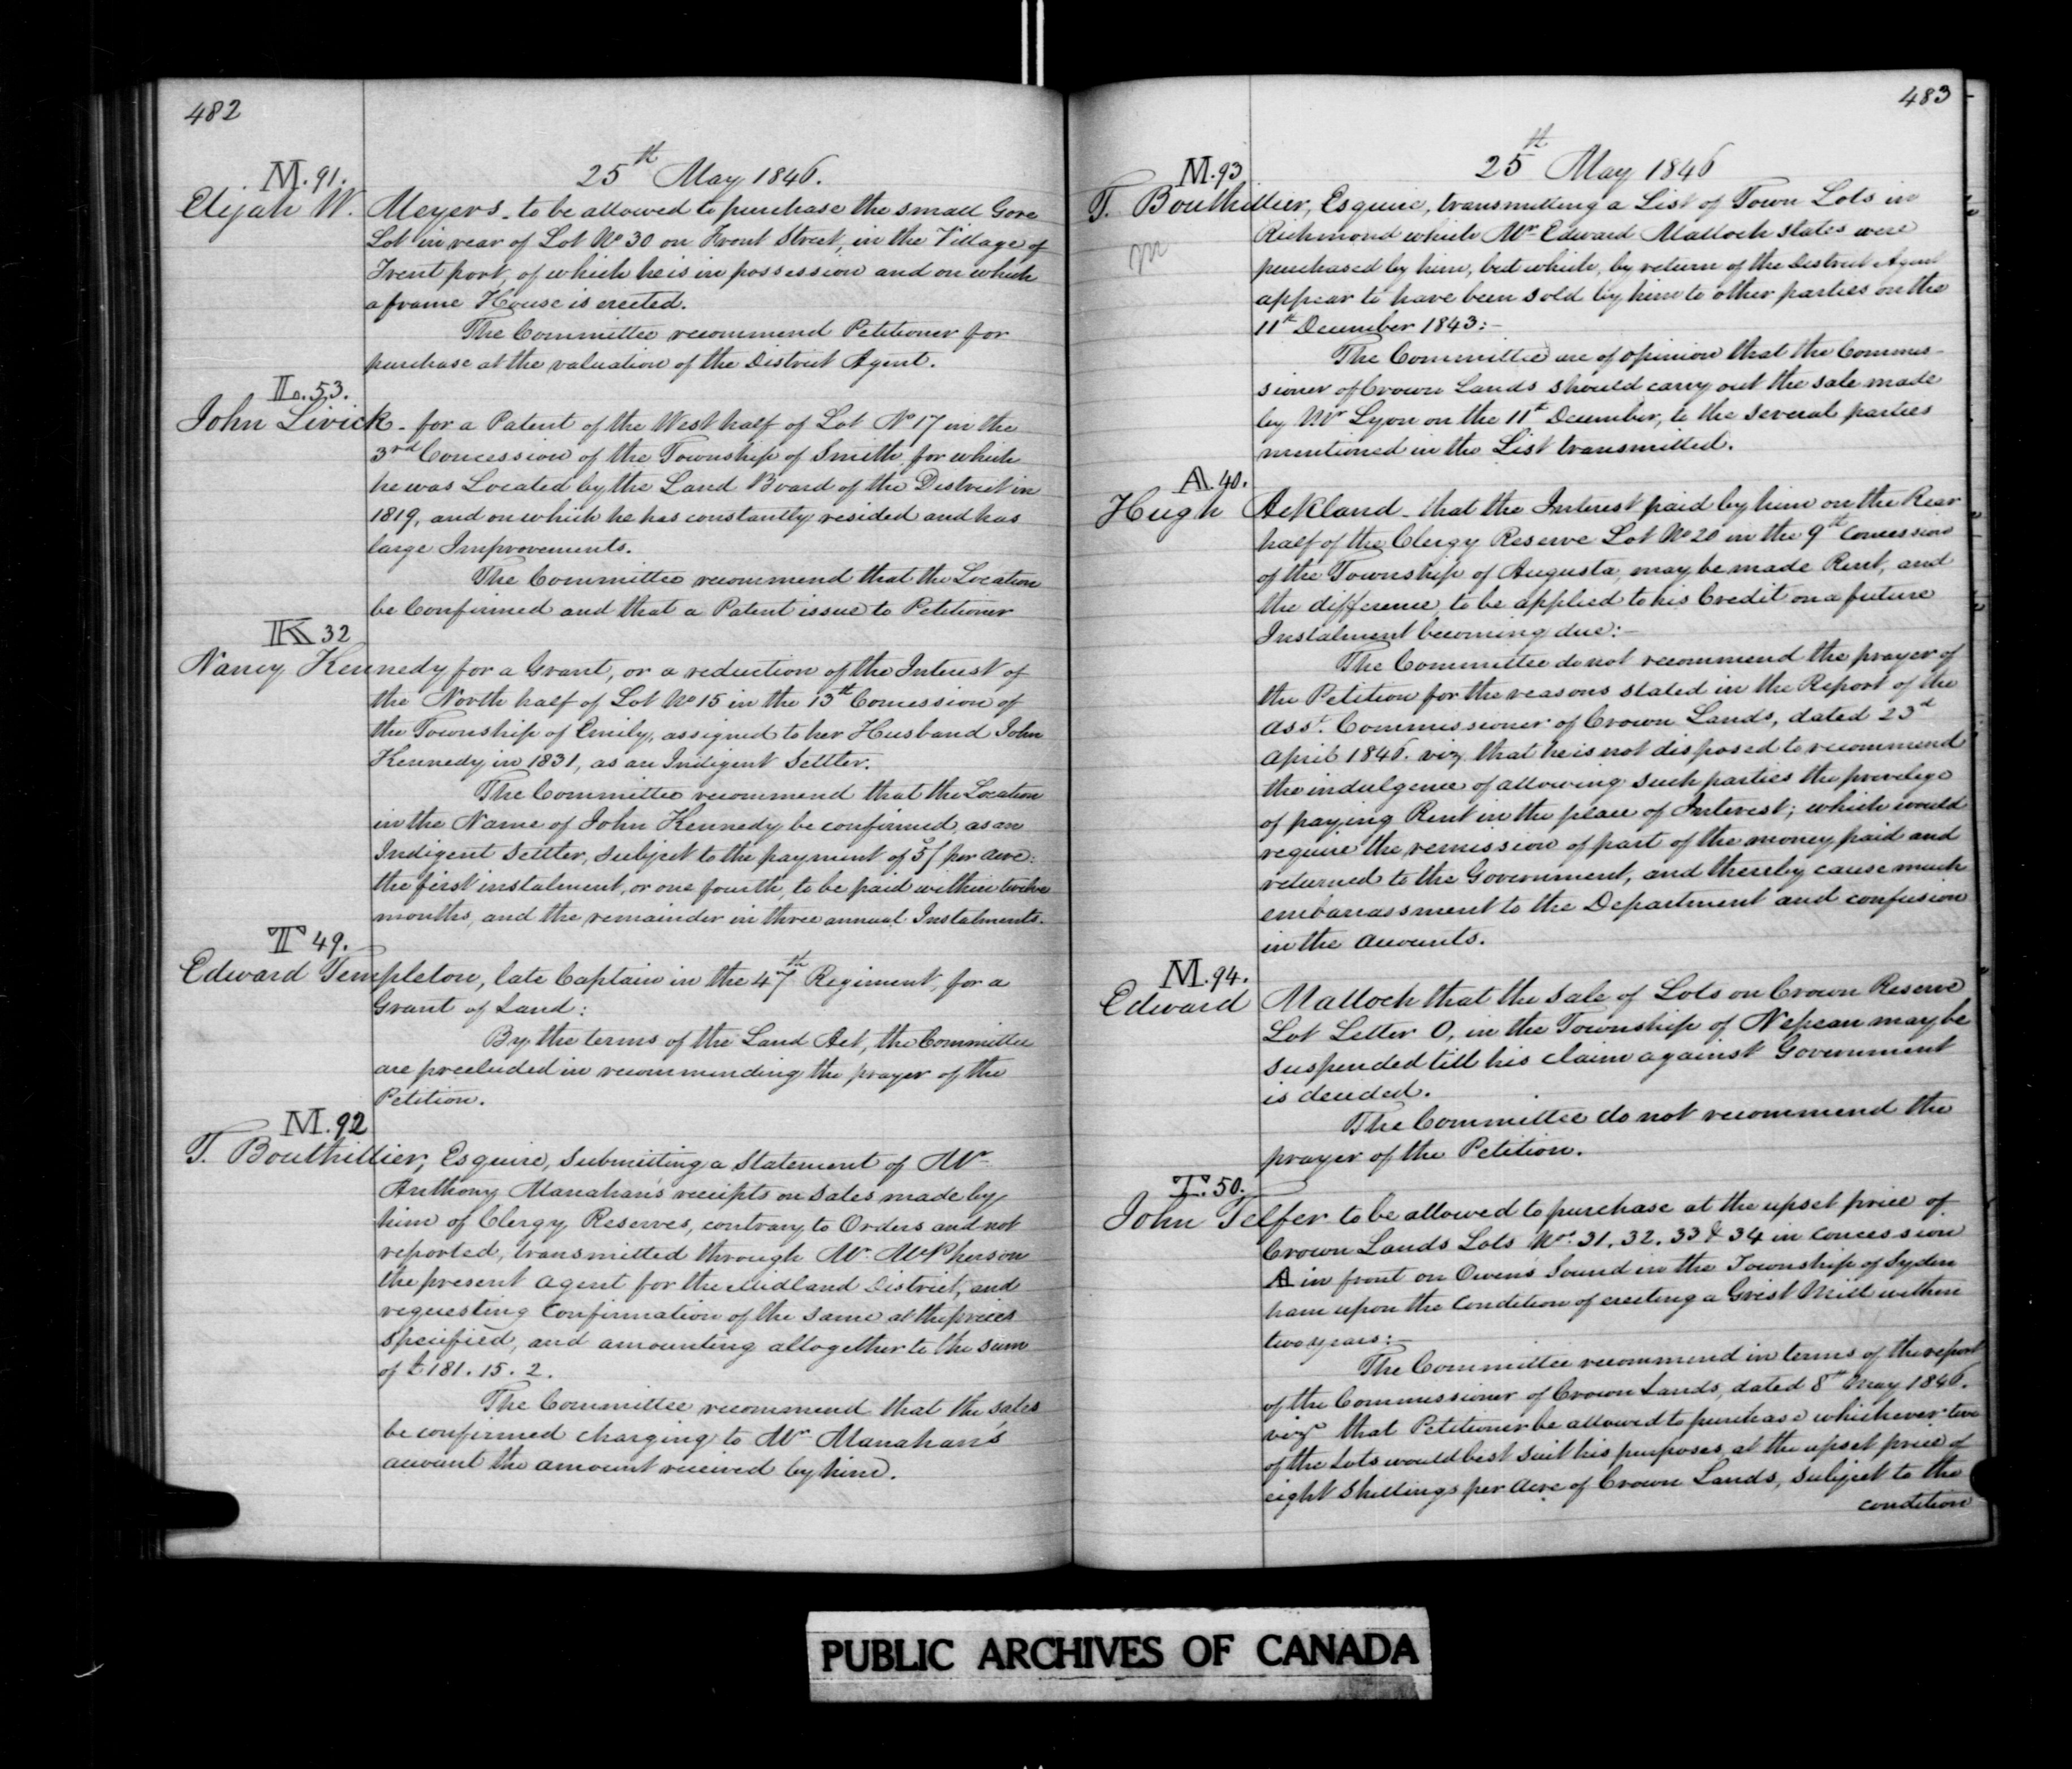 482
25th May 1846.
M. 91.
Elijah W. Meyers - to be allowed to purchase the small Gore
Lot in rear of Lot No 30 on Front Street, in the Village of
Trent port, of which he is in possession and on which
a frame House is erected.
The Committee recommend Petitioner for
purchase at the valuation of the District Agent.
L. 53.
John Livick - for a Patent of the West half of Lot No 17 in the
3rd Concession of the Township of Smith for which
he was Located by the Land Board of the District in
1819, and on which he has constantly resided and has
large Improvements.
The Committee recommend that the Location
be Confirmed and that a Patent issue to Petitioner
K 32
Nancy Kennedy for a Grant, or a reduction of the Interest of
the North half of Lot No 15 in the 13th Concession of
the Township of Emily, assigned to her Husband John
Kennedy in 1831, as an Indigent Settler.
The Committee recommend that the Location
in the Name of John Kennedy be confirmed, as an
Indigent Settler, subject to the payment of 5/ per acre:
the first instalment, or one fourth, to be paid within twelve
months, and the remainder in three annual Instalments.
T 49.
Edward Templeton, late Captain in the 47th Regiment, for a
Grant of Land:
By the terms of the Land Act, the Committee
are precluded in recommending the prayer of the
Petition.
M. 92
T. Bouthillier, Esquire, submitting a Statement of Mr
Anthony Manahan's receipts on sales made by
him of Clergy Reserves, contrary to Orders and not
reported, transmitted through Mr McPherson
the present Agent for the Midland District, and
requesting Confirmation of the same at the prices
specified, and amounting altogether to the sum
of £181. 15. 2.
The Committee recommend that the sales
be confirmed charging to Mr Manahan's
account the amount received by him.
483
25th May 1846
M. 93
T. Bouthillier, Esquire, transmitting a List of Town Lots in
Richmond which Mr Edward Malloch states were
purchased by him, but which, by return of the District Agent
appear to have been sold by him to other parties on the
11th December 1843:-
The Committee are of opinion that the Commis-
sioner of Crown Lands should carry out the sale made
by Mr Lyon on the 11th December, to the several parties
mentioned in the List transmitted.
A. 40.
Hugh Ackland - that the Interest paid by him on the Rear
half of the Clergy Reserve Lot No 20 in the 9th Concession
of the Township of Augusta, may be made Rent, and
the difference to be applied to his Credit on a future
Instalment becoming due:-
The Committee do not recommend the prayer of
the Petition for the reasons stated in the Report of the
Asst. Commissioner of Crown Lands, dated 23d
April 1846. viz that he is not disposed to recommend
the indulgence of allowing such parties the privilege
of paying Rent in the place of Interest; which would
require the remission of part of the money paid and
returned to the Government, and thereby cause much
embarrassment to the Department and confusion
in the accounts.
M. 94.
Edward Malloch that the sale of Lots on Crown Reserve
Lot Letter O, in the Township of Nepean may be
suspended till his claim against Government
is decided.
The Committee do not recommend the
prayer of the Petition.
T. 50.
John Telfer to be allowed to purchase at the upset price of
Crown Lands Lots Nos. 31. 32. 33 & 34 in Concession
A in front on Owens Sound in the Township of Syden
ham upon the Condition of erecting a Grist Mill within
two years:-
The Committee recommend in terms of the report
of the Commissioner of Crown Lands, dated 8th May 1846.
vizt that Petitioner be allowed to purchase whichever two
of the Lots would best suit his purposes, at the upset price of
eight Shillings per acre of Crown Lands, subject to the
condition
PUBLIC ARCHIVES OF CANADA